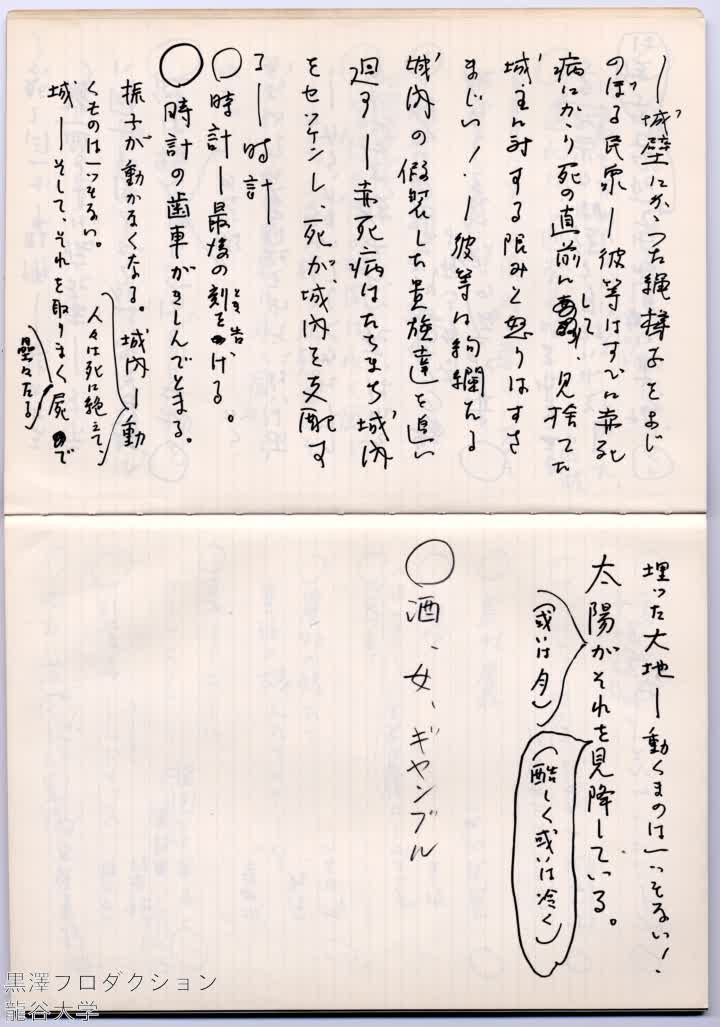 ー城壁にかゝった縄梯子をよじ
のぼる民衆ー彼等はすでに赤死
病にかゝり死の直前にして、見捨てた
城主に対する限みと怒りはすさ
まじい！ー彼等は絢爛たる
城内の假装した貴族達を追い
廻すー赤死病はたちまち城内
をセッケンし、死が城内を支配す
るー時計ー
○時計ー最後の刻を告げる。
とき
○時計の歯車がきしんでとまる。
振子が動かなくなる。城内ー動
くものは一つもない。
人々は死に絶えて、
城ーそして、それを取りまく屍で
塁々たる
埋った大地ー動くものは一つもない！
太陽がそれを見降している。
（或いは月）
（酷しく或いは冷く）
○酒、女、ギャンブル
黒澤プロダクション
龍谷大学